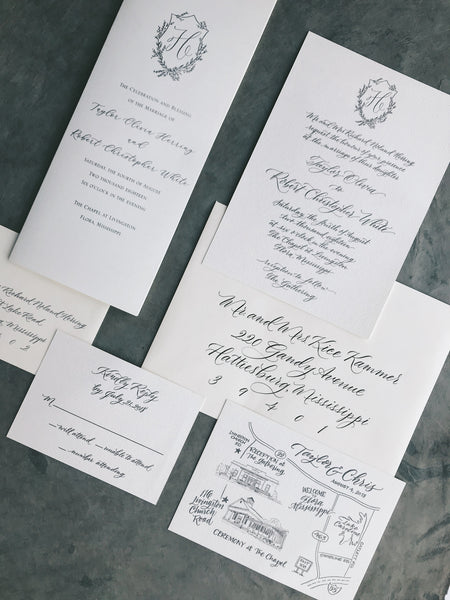 H
The Celebration and Blessing
of the Marriage of
Taylor Olivia Herring
and
Robert Christopher White
Saturday, the fourth of August
Two thousand eighteen
Six o'clock in the evening
The Chapel at Livingston
Flora, Mississippi
H
Mr. and Mrs. Richard Noland Herring
request the honour of your presence
at the marriage of their daughter
Taylor Olivia
to
Robert Christopher White
Saturday, the fourth of August
two thousand eighteen
at six o'clock in the evening
The Chapel at Livingston
Flora, Mississippi
reception to follow
The Gathering
Richard Noland Herring
Lake Road
Mississippi
Mr. and Mrs. Kice Kammer
220 Gandy Avenue
Hattiesburg, Mississippi
3 9 4 0 1
Kindly Reply
by July 21, 2018
M
will attend
unable to attend
number attending
Taylor & Chris
August 4, 2018
Livingston
Church
Rd
Reception @
The Gathering
Welcome
to
Flora,
Mississippi
116
Livingston
Church
Road
Lake
Caroline
463
Ceremony @ The Chapel
55